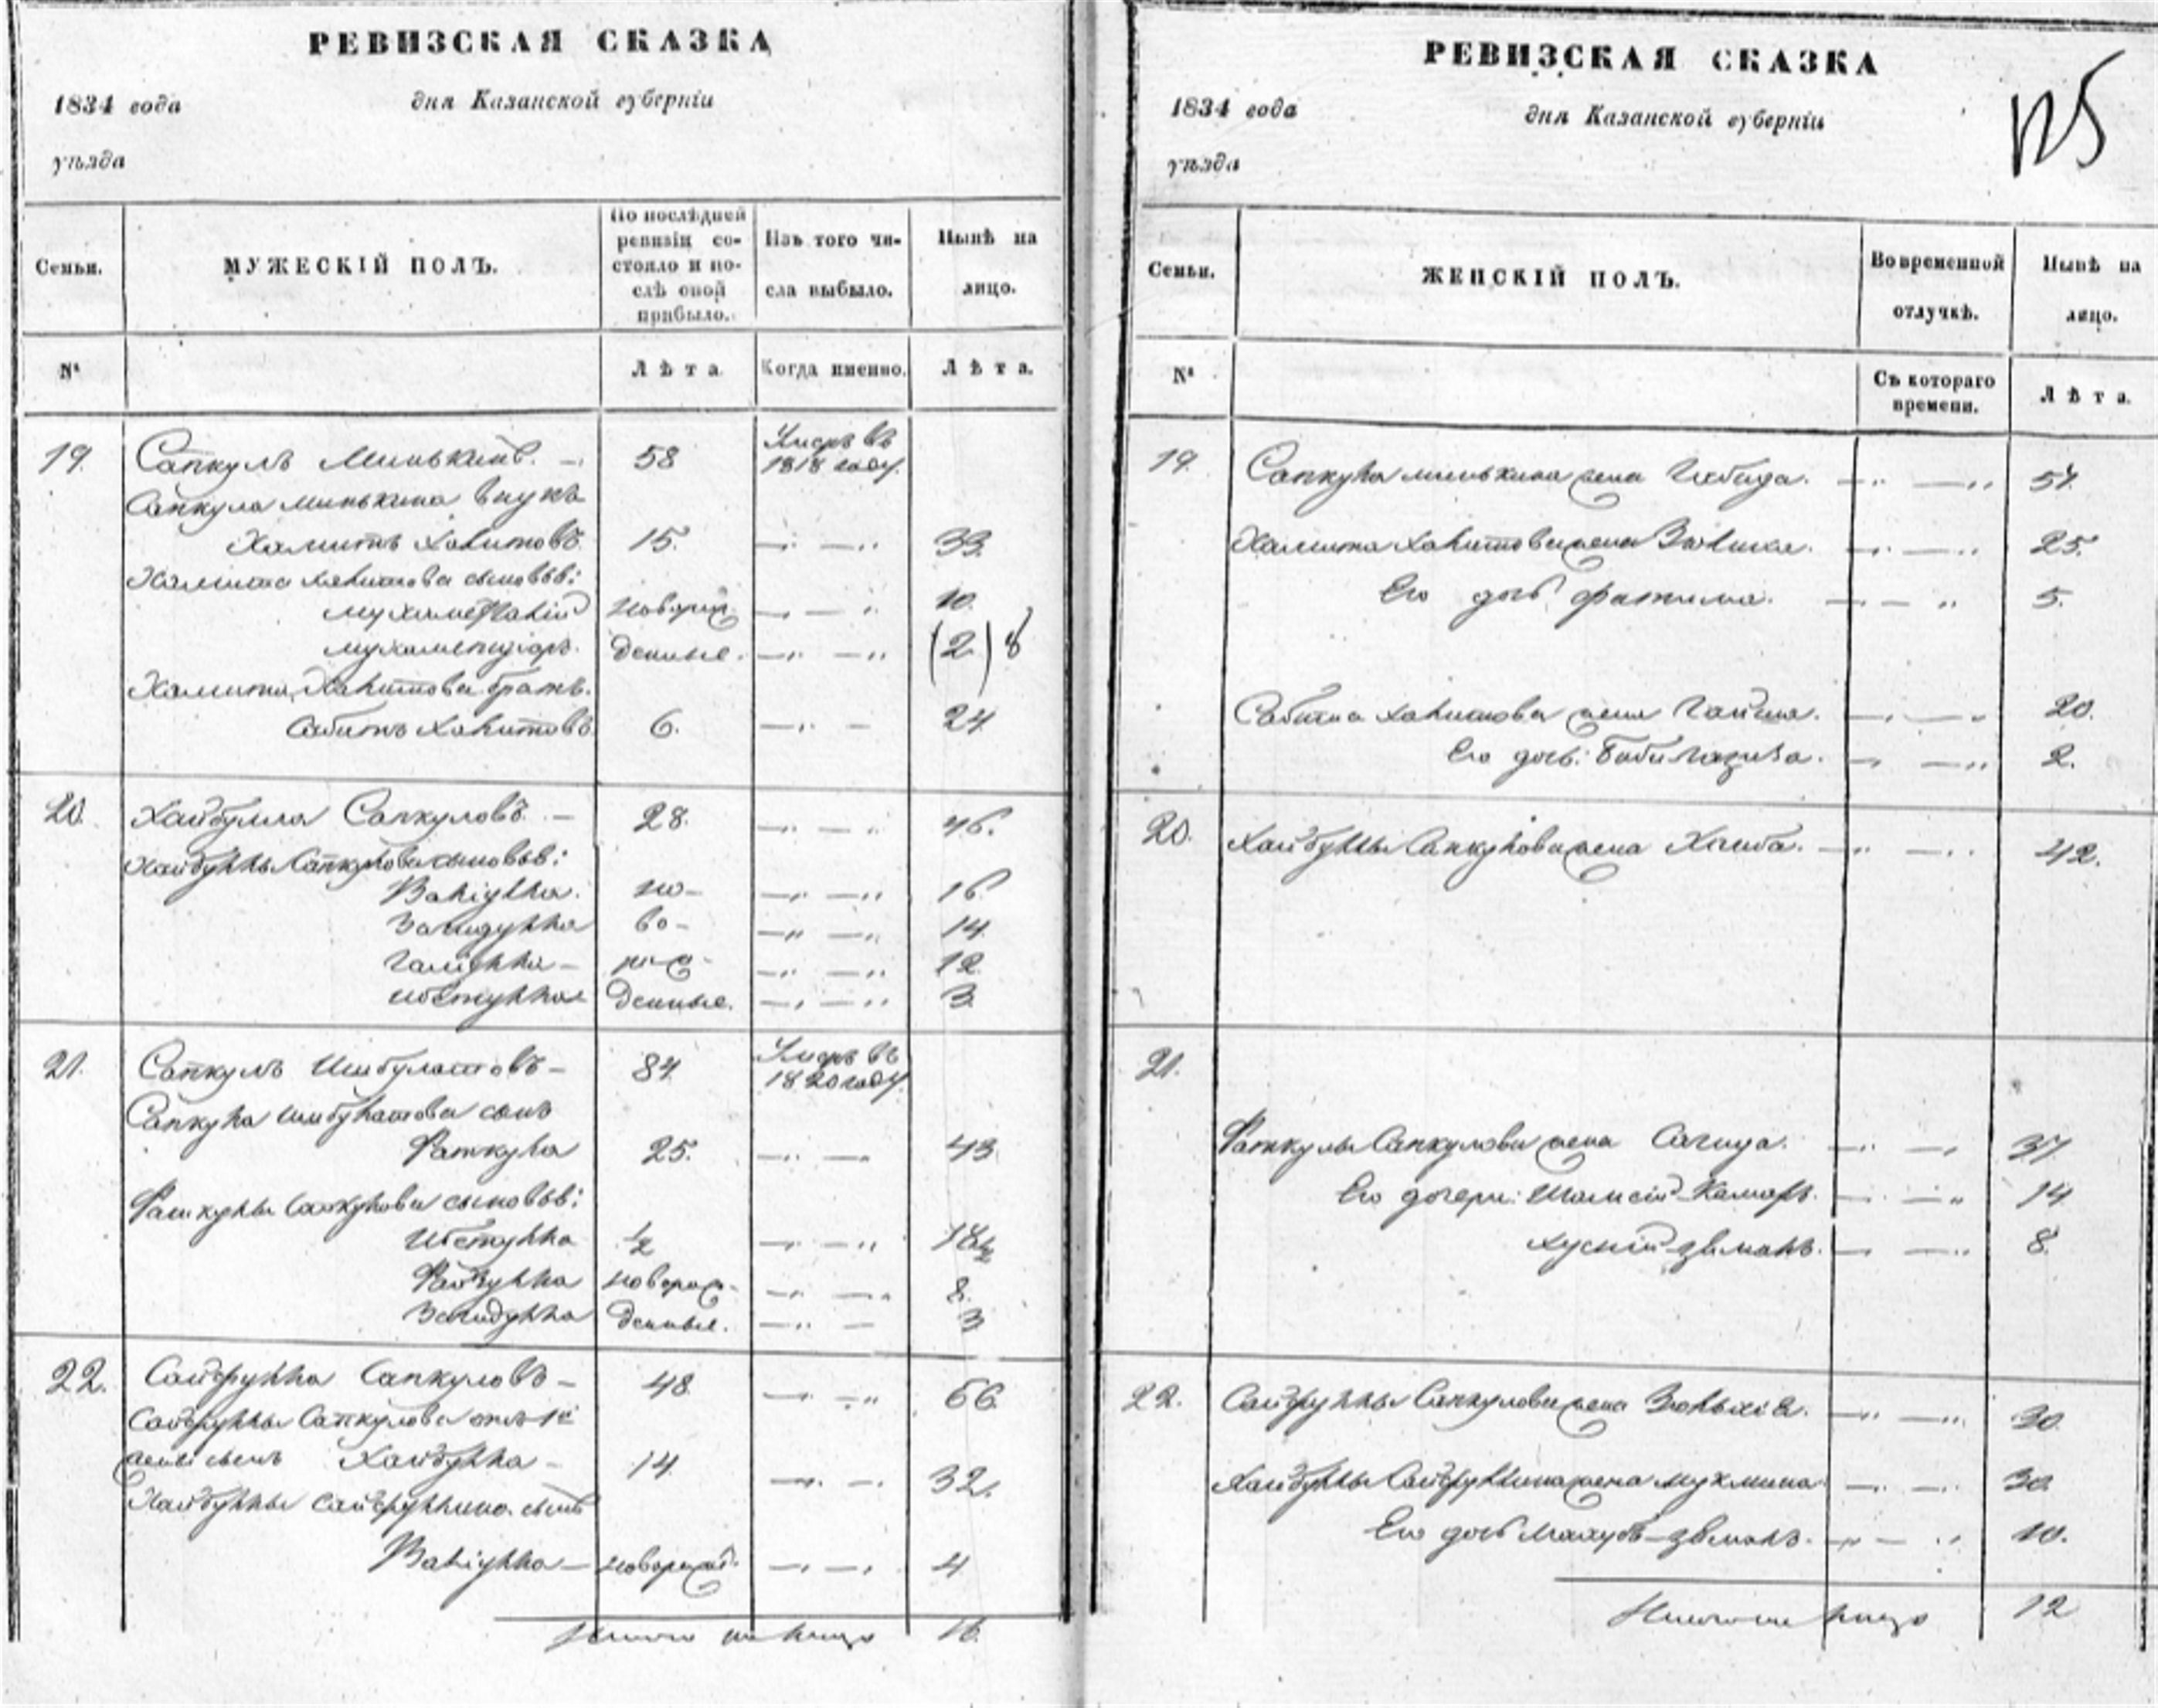 РЕВИЗСКАЯ СКАЗКА
1834 года дня Казанской губерніи
уѣзда
Семьи. МУЖЕСКІЙ ПОЛЪ. По послѣдней ревизіи состояло и послѣ оной прибыло. Изъ того числа выбыло. Нынѣ на лицо.
№ Лѣта Когда именно. Лѣта.
19. Сапкулъ Минькинъ. 58 Умеръ въ 1818 году.
Сапкула Минькина внукъ
Хамитъ Халитовъ 15. 33.
Хамита Халитова сыновья:
новорож 10.
денные. (2) 8
Хамита Халитова братъ.
Сабитъ Халитовъ 6. 24
20. Хайбулла Сапкуловъ 28. 46.
Хайбуллы Сапкулова сыновья:
Валіулла. но- 16.
Загидулла во- 14
Галіулла рож- 12
денные. 3
21. Сапкулъ Ишбулатовъ 84 Умеръ въ 1820 году.
Сапкула Ишбулатова сынъ
Фаткула 25. 43
Фаткулы Сапкулова сыновья:
½ 18½
Файзулла новорож- 8.
Загидулла денные. 3
22. Сайфулла Сапкуловъ 48 66
Сайфуллы Сапкулова отъ 1й
жены сынъ Хайбулла 14 32.
Хайбуллы Сайфуллина сынъ
Валіулла новорожд. 4
Итого на лицо 16.
РЕВИЗСКАЯ СКАЗКА
1834 года дня Казанской губерніи
уѣзда
Семьи. ЖЕНСКІЙ ПОЛЪ. Во временной отлучкѣ. Нынѣ на лицо.
№ Съ котораго времени. Лѣта.
19. Сапкула Минькина жена
Хамита Халитова жена 25.
Его дочь Фатима. 5.
Сабита Халитова жена 20.
Его дочь: 2.
20. Хайбуллы Сапкулова жена 42.
21.
Фаткулы Сапкулова жена Сагида.
Его дочери: Шамсій Камаръ. 14
8.
22. Сайфуллы Сапкулова жена 30
Хайбуллы Сайфуллина жена Мухмина 30
Его дочь 10.
Итого на лицо 12